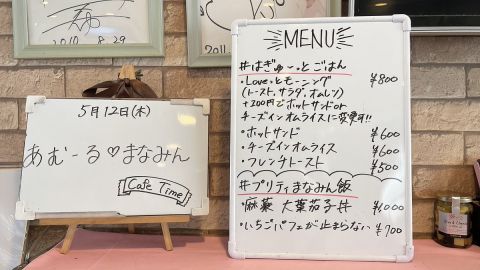 2010.8.29
2011.
5月12日(木)
あむーる♡まなみん
Cafe Time
MENU
#はぎゅーっとごはん
・Loveっともーニング ¥800
(トースト、サラダ、オムレツ)
+200円でホットサンドor
チーズインオムライスに変更可!!
・ホットサンド ¥600
・チーズインオムライス ¥600
・フレンチトースト ¥500
#プリティまなみん飯
・麻薬 大葉茄子丼 ¥1,000
・いちごパフェが止まらない ¥700